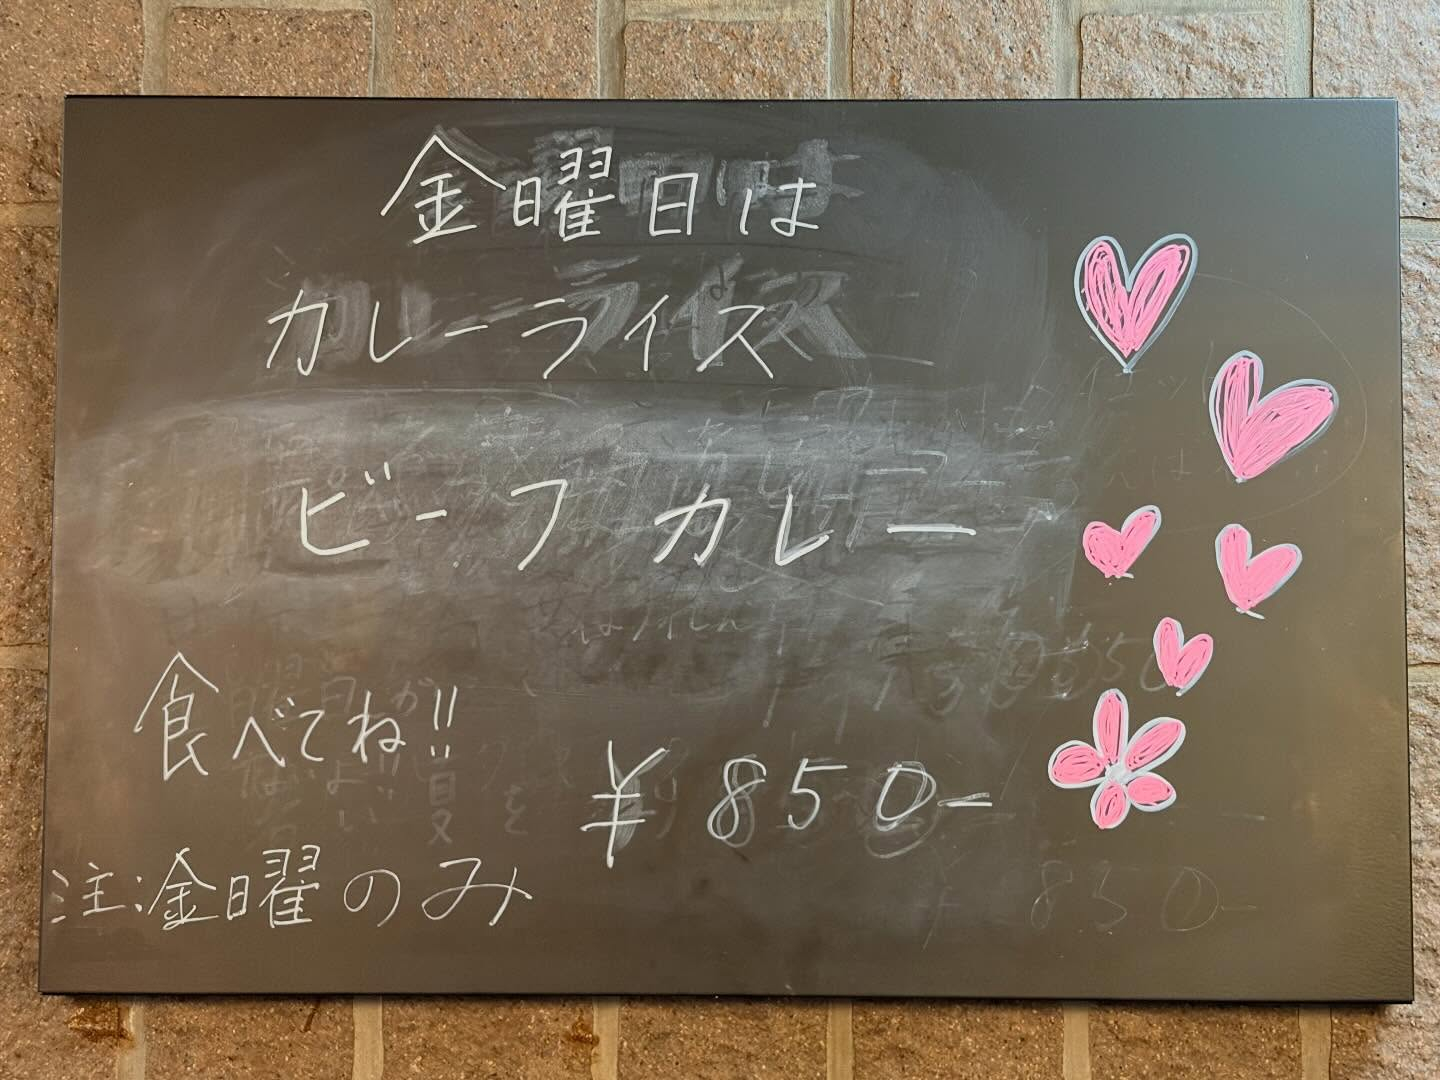 金曜日は
カレーライス
ビーフカレー
食べてね!!
¥850-
注:金曜のみ
¥850-